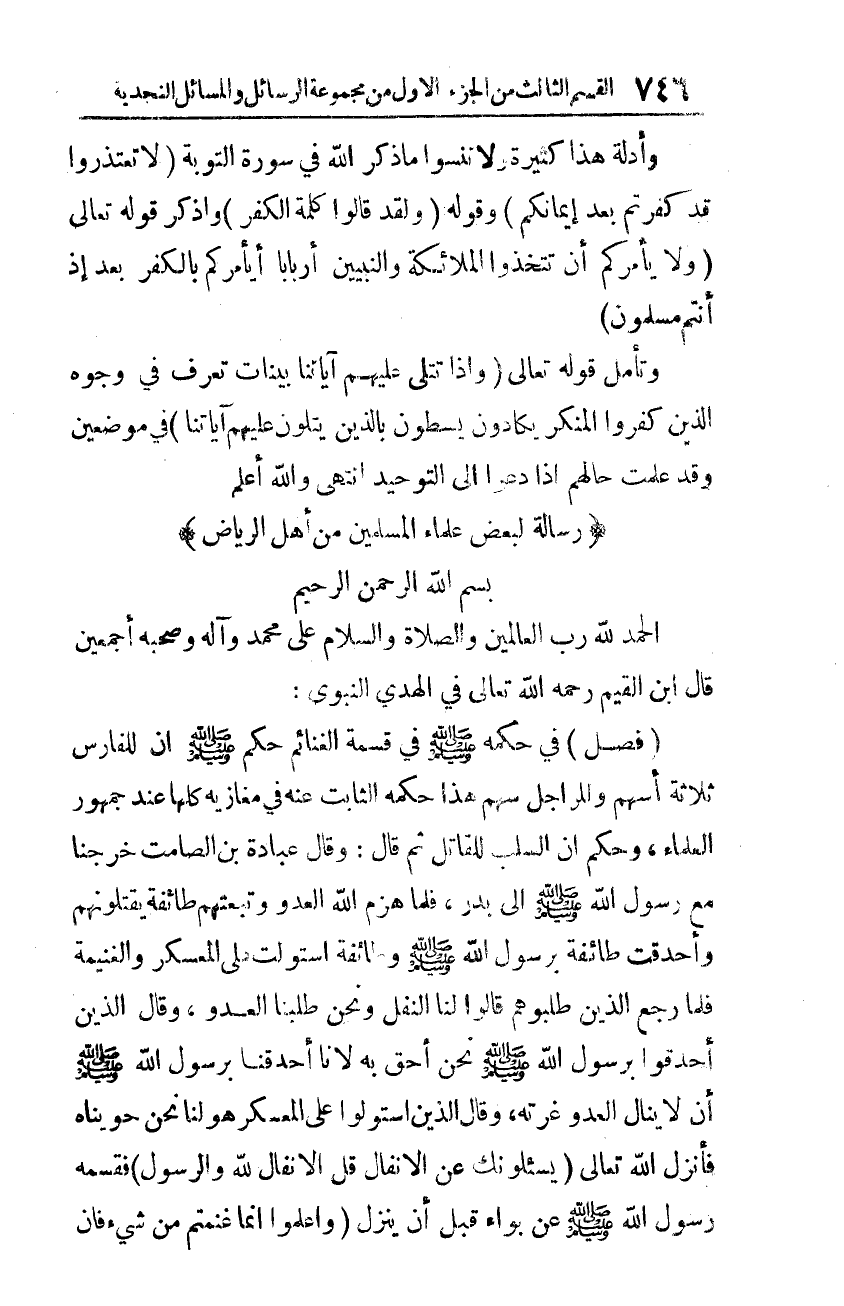 ٧٤٦ القسم الثالث من الجزء الاول من مجموعة الرسائل والمسائل النجدية
وأدلة هذا كثيرة ولا تنسوا ماذكر الله في سورة التوبة ( لا تعتذروا
قد كفرتم بعد إيمانكم ) وقوله ( ولقد قالوا كلمة الكفر ) واذكر قوله تعالى
( ولا يأمركم أن تتخذوا الملائكة والنبيين أربابا أيأمركم بالكفر بعد إذ
أنتم مسلمون)
وتأمل قوله تعالى ( واذا تتلى عليهم آياتنا بينات تعرف في وجوه
الذين كفروا المنكر يكادون يسطون بالذين يتلون عليهم آياتنا ) في موضعين
وقد علمت حالهم اذا دعوا الى التوحيد انتهى والله أعلم
﴿ رسالة لبعض علماء المسلمين من أهل الرياض ﴾
بسم الله الرحمن الرحيم
الحمد لله رب العالمين والصلاة والسلام على محمد وآله وصحبه أجمعين
قال ابن القيم رحمه الله تعالى في الهدي النبوي :
( فصل ) في حكمه ﷺ في قسمة الغنائم حكم ﷺ ان للفارس
ثلاثة أسهم وللراجل سهم هذا حكمه الثابت عنه في مغازيه كلها عند جمهور
العلماء ، وحكم ان السلب للقاتل ثم قال : وقال عبادة بن الصامت خرجنا
مع رسول الله ﷺ الى بدر ، فلما هزم الله العدو وتبعتهم طائفة يقتلونهم
وأحدقت طائفة برسول الله ﷺ وطائفة استولت على المعسكر والغنيمة
فلما رجع الذين طلبوهم قالوا لنا النفل ونحن طلبنا العدو ، وقال الذين
أحدقوا برسول الله ﷺ نحن أحق به لانا أحدقنا برسول الله ﷺ
أن لا ينال العدو غرته، وقال الذين استولوا على المعسكر هو لنا نحن حويناه
فأنزل الله تعالى ( يسئلونك عن الانفال قل الانفال لله والرسول) فقسمه
رسول الله ﷺ عن بواء قبل أن ينزل ( واعلموا انما غنمتم من شيء فان